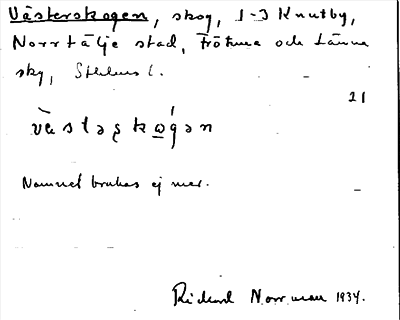 Västerskogen, skog, 1-3 Knutby,
Norrtälje stad, Frötuna och Länna
skg, Sthlms l.
21
västəskogən
Namnet brukas ej mer.
Rickard Norrman 1934.